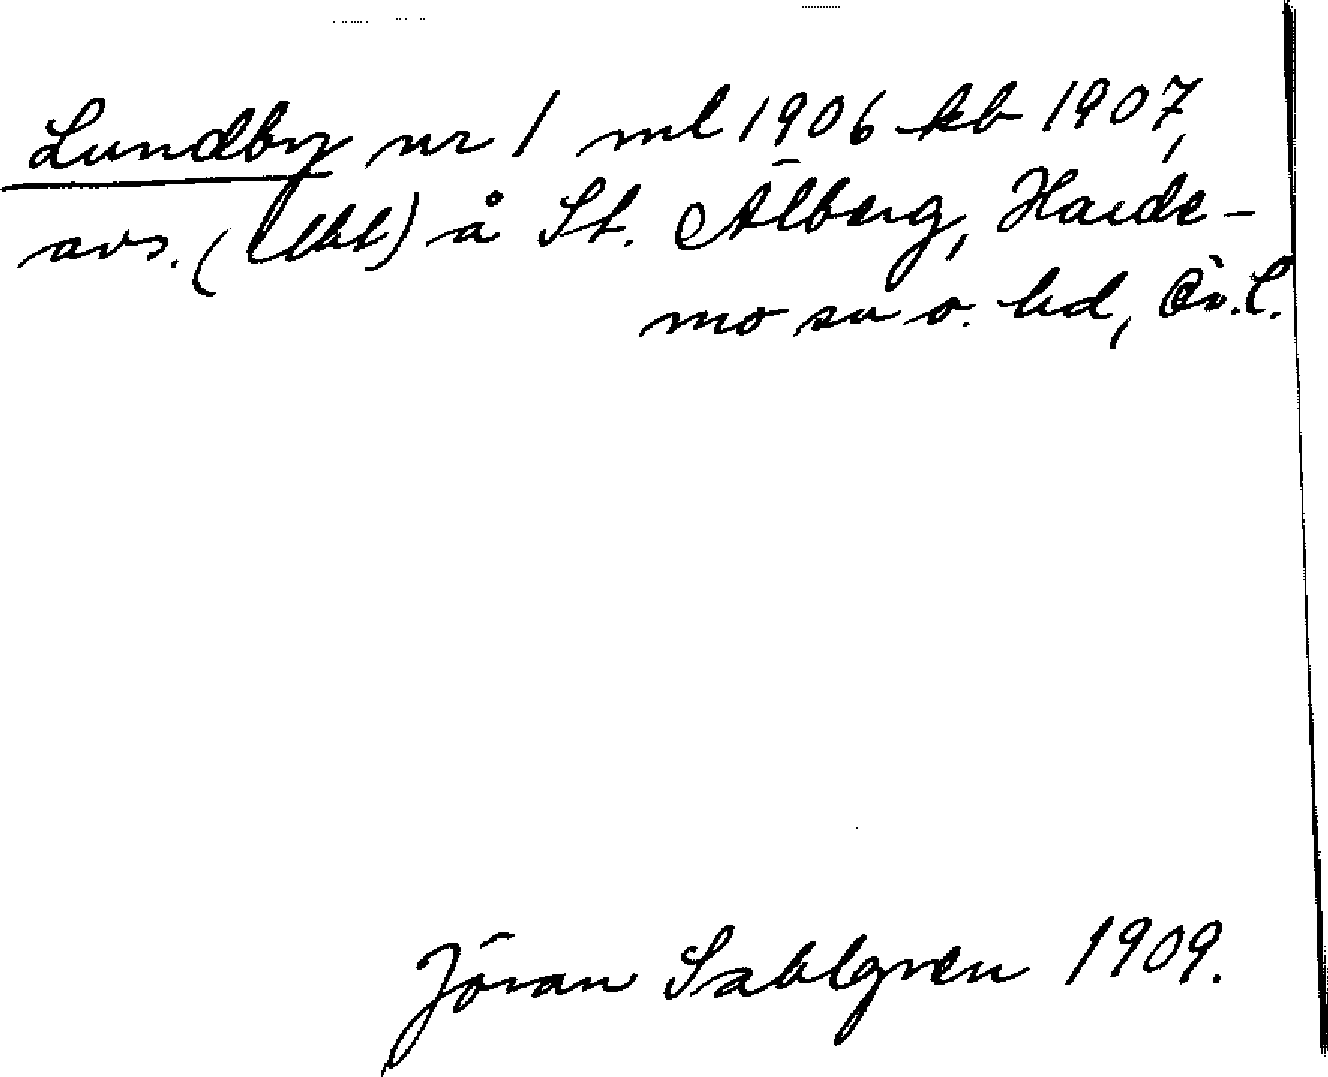 Lundby nr 1 ml 1906 kb 1907,
avs. (lht) å St. Älberg, Harde-
mo sn o. hd, Ör. l.
Jöran Sahlgren 1909.